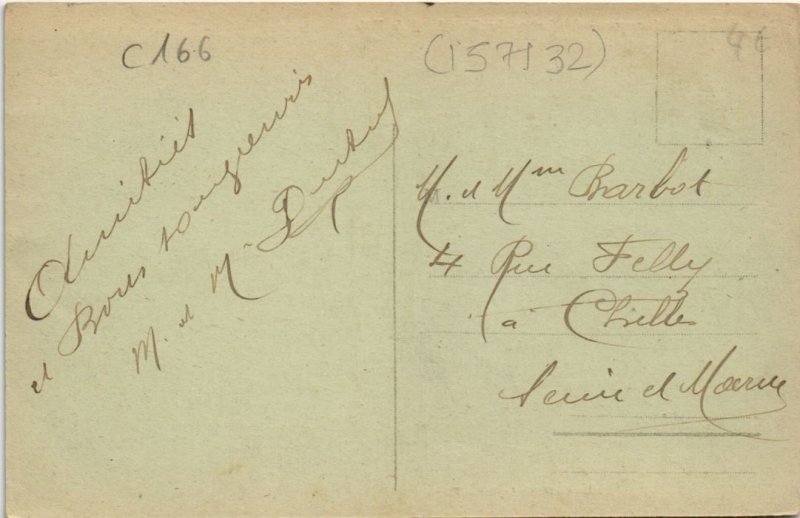 C166
(157132)
4€
Amitiés
et Bons souvenirs
M. et M
M. et Mme Barbot
4 Rue Felly
à Chelles
Seine et Marne